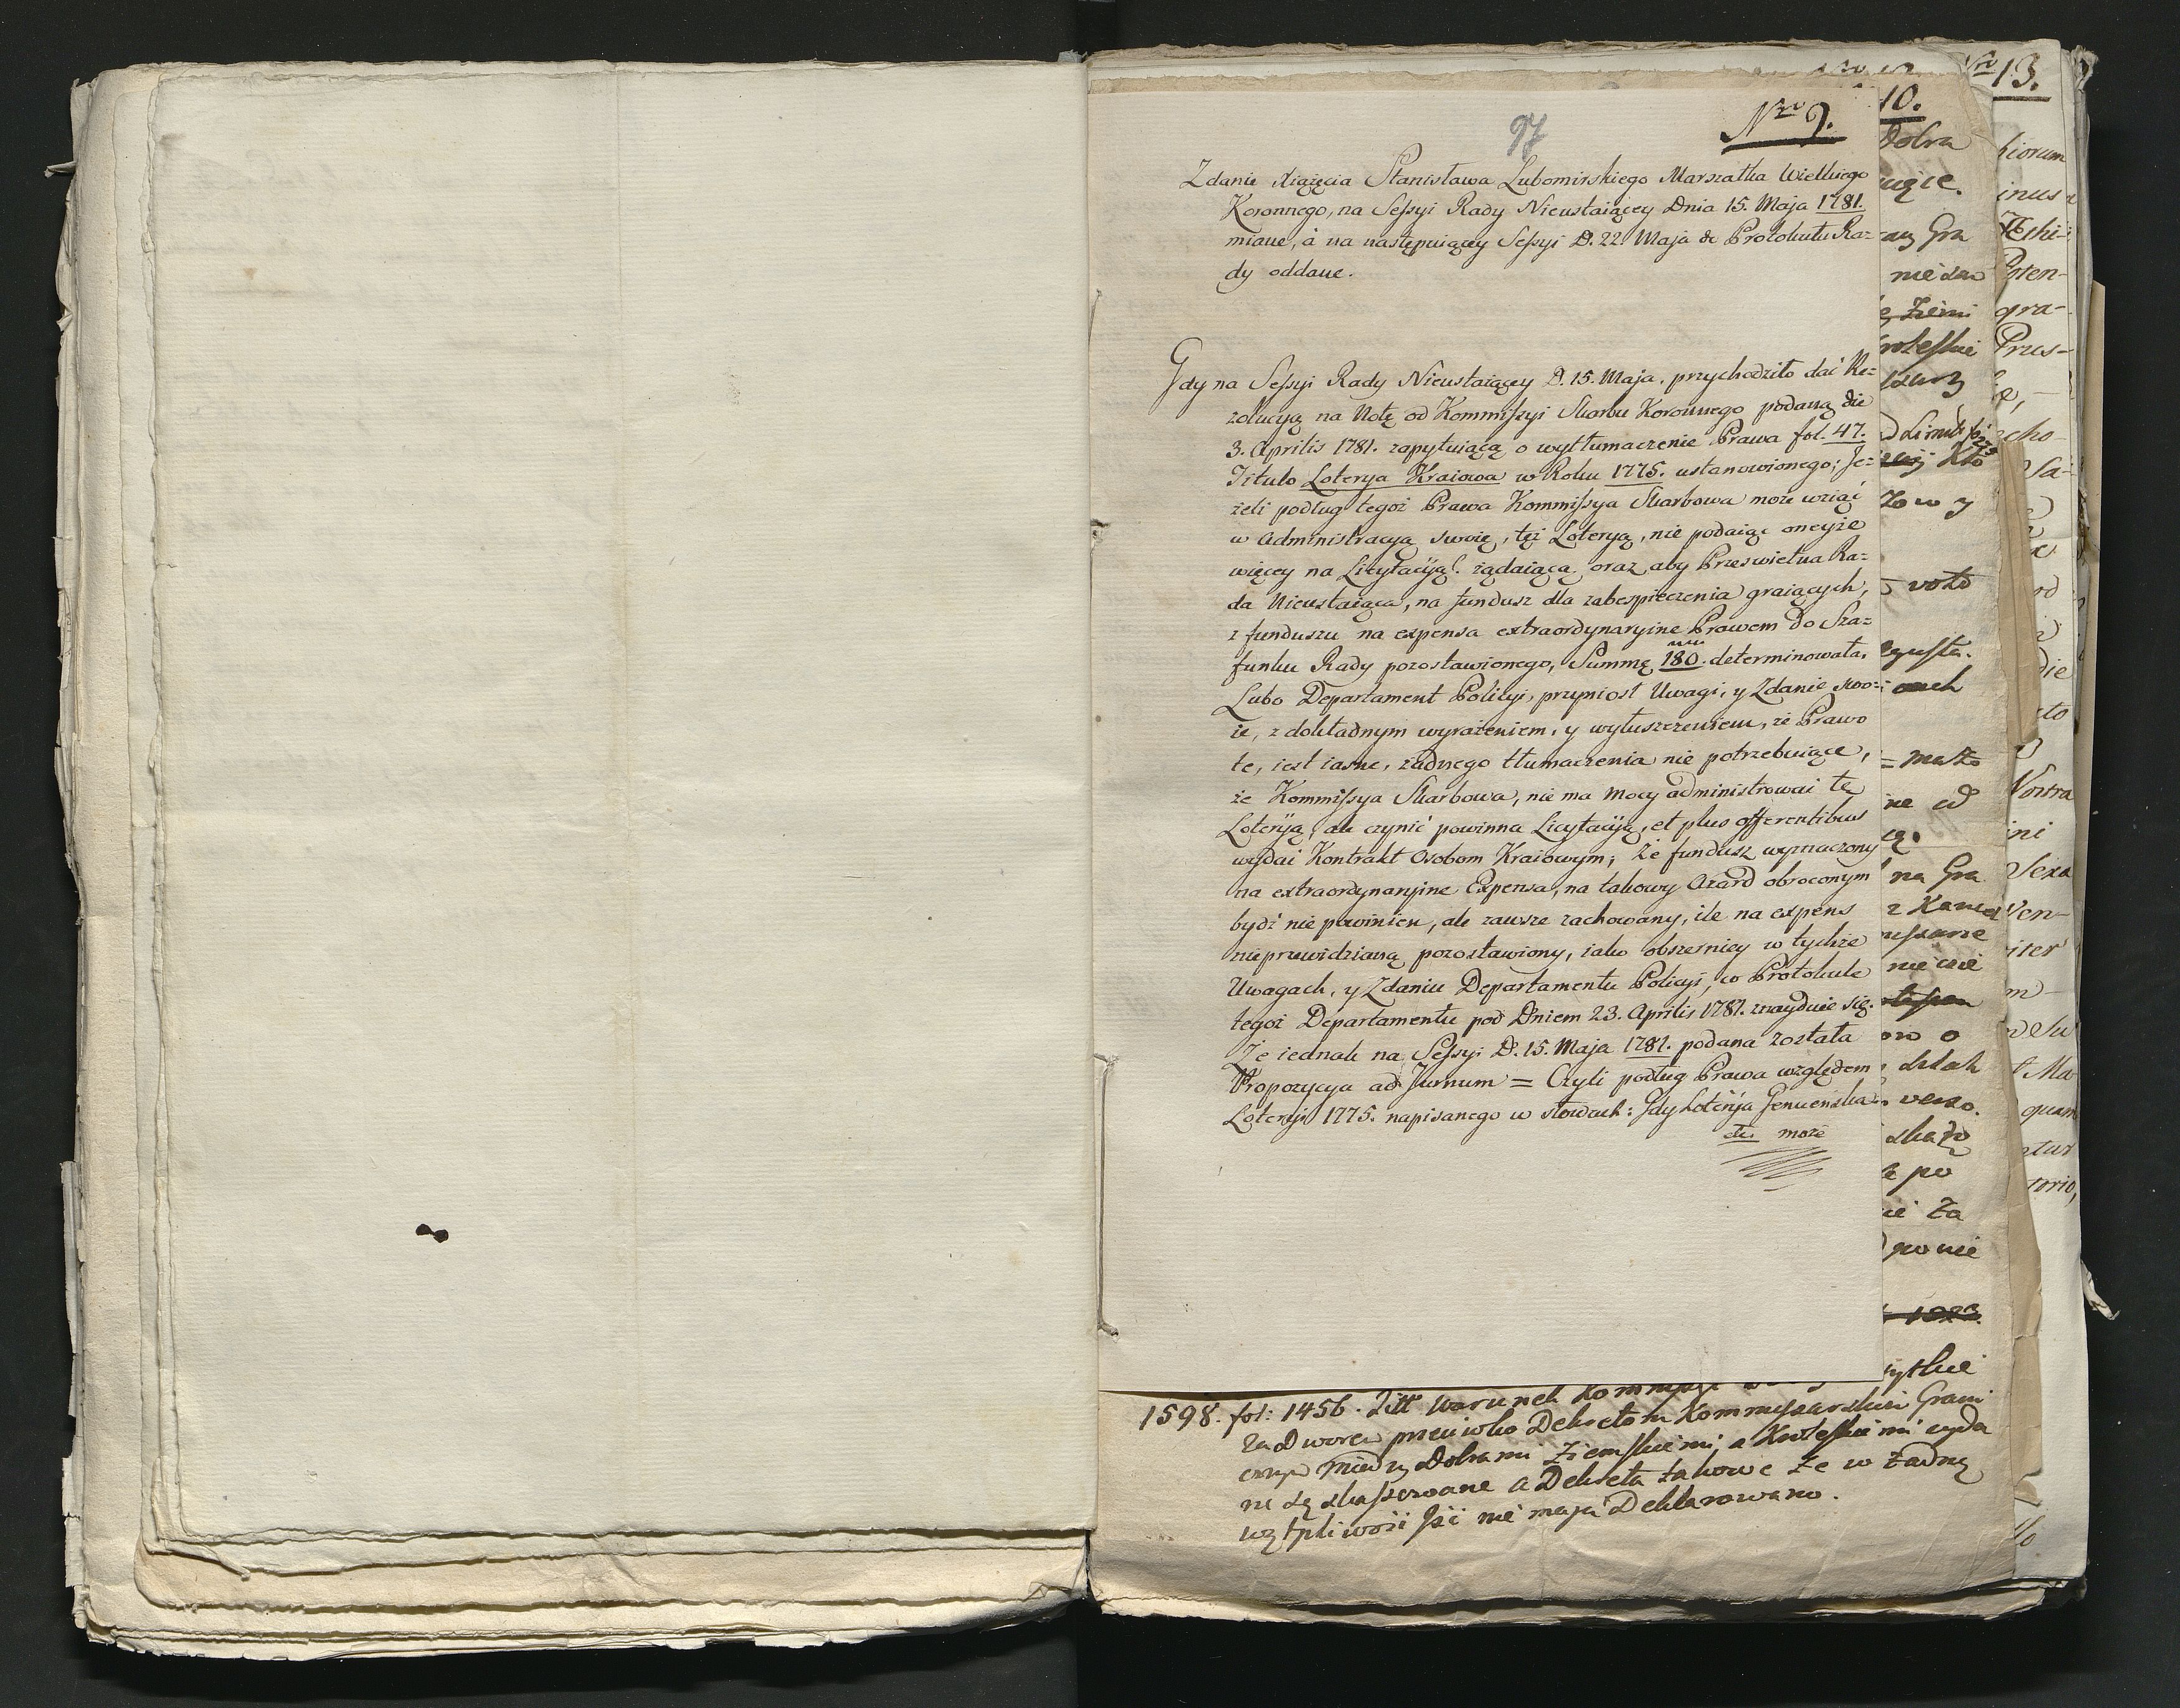 97
Nro 9.
Zdanie Xiążęcia Stanisława Lubomirskiego Marszałka Wielkiego
Koronnego, na Sessyi Rady Nieustaiącey Dnia 15. Maja 1781.
miane, à na następuiącey Sessyi D. 22. Maja do Protokułu Ra=
dy oddane.
Gdy na Sessyi Rady Nieustaiącey D. 15. Maja, przychodziło dać Re=
zolucyą na Notę od Kommissyi Skarbu Koronnego podaną die
3. Aprilis 1781. zapytuiącą o wytłumaczenie Prawa fol. 47.
Titulo Loterya Kraiowa w Roku 1775. ustanowionego; Je=
żeli podług tegoż Prawa Kommissya Skarbowa może wziąć
w Administracyą swoię, tęż Loteryą, nie podaiąc oneyże
więcey na Licytacyją? żądaiącą oraz, aby Prześwietna Ra=
da Nieustaiąca, na fundusz dla zabespieczenia graiących,
z funduszu na expensa extraordynaryine Prawem do Sza=
funku Rady pozostawionego, Summę 180. determinowała.
Lubo Departament Policyi, przyniosł Uwagi, y Zdanie swo=
ie, z dokładnym wyrażeniem, y wyłuszczeniem, że Prawo
te, iest iasne, żadnego tłumaczenia nie potrzebuiące,
że Kommissya Skarbowa, nie ma mocy administrować tę
Loteryją, ale czynić powinna Licytacyją, et plus offerentibus
wydać Kontrakt Osobom Kraiowym; że fundusz wyznaczony
na extraordynaryine Expensa, na takowy Azard obroconym
bydź nie powinien, ale zawsze zachowany, ile na expens
nieprzewidzianą pozostawiony, iako obszerniey w tychże
Uwagach, y Zdaniu Departamentu Policyi, w Protokule
tegoż Departamentu pod Dniem 23. Aprilis 1781. znayduie się.
Że iednak na Sessyi D. 15. Maja 1781. podana została
Propozycya ad Turnum = Czyli podług Prawa względem
Loteryi 1775. napisanego w słowach: Gdy Loterya Genuenska
etc może
10.
Dobra
nie
Gra
voto
ne
na Gra
nie
o
verso.
po
13.
inus
Poten-
gra-
Prus-
Nostra
Sexa
iter
quam
torio,
1598. fol: 1456. Titt Warunek
Zadworca przeciwko Dekretom Kommissarskim Grani
cznym między Dobrami Ziemskiemi, a Krolesskiemi wyda
ne są skassowane a Dekreta takowe że w żadną
wątpliwość iść nie mają Deklarowano.